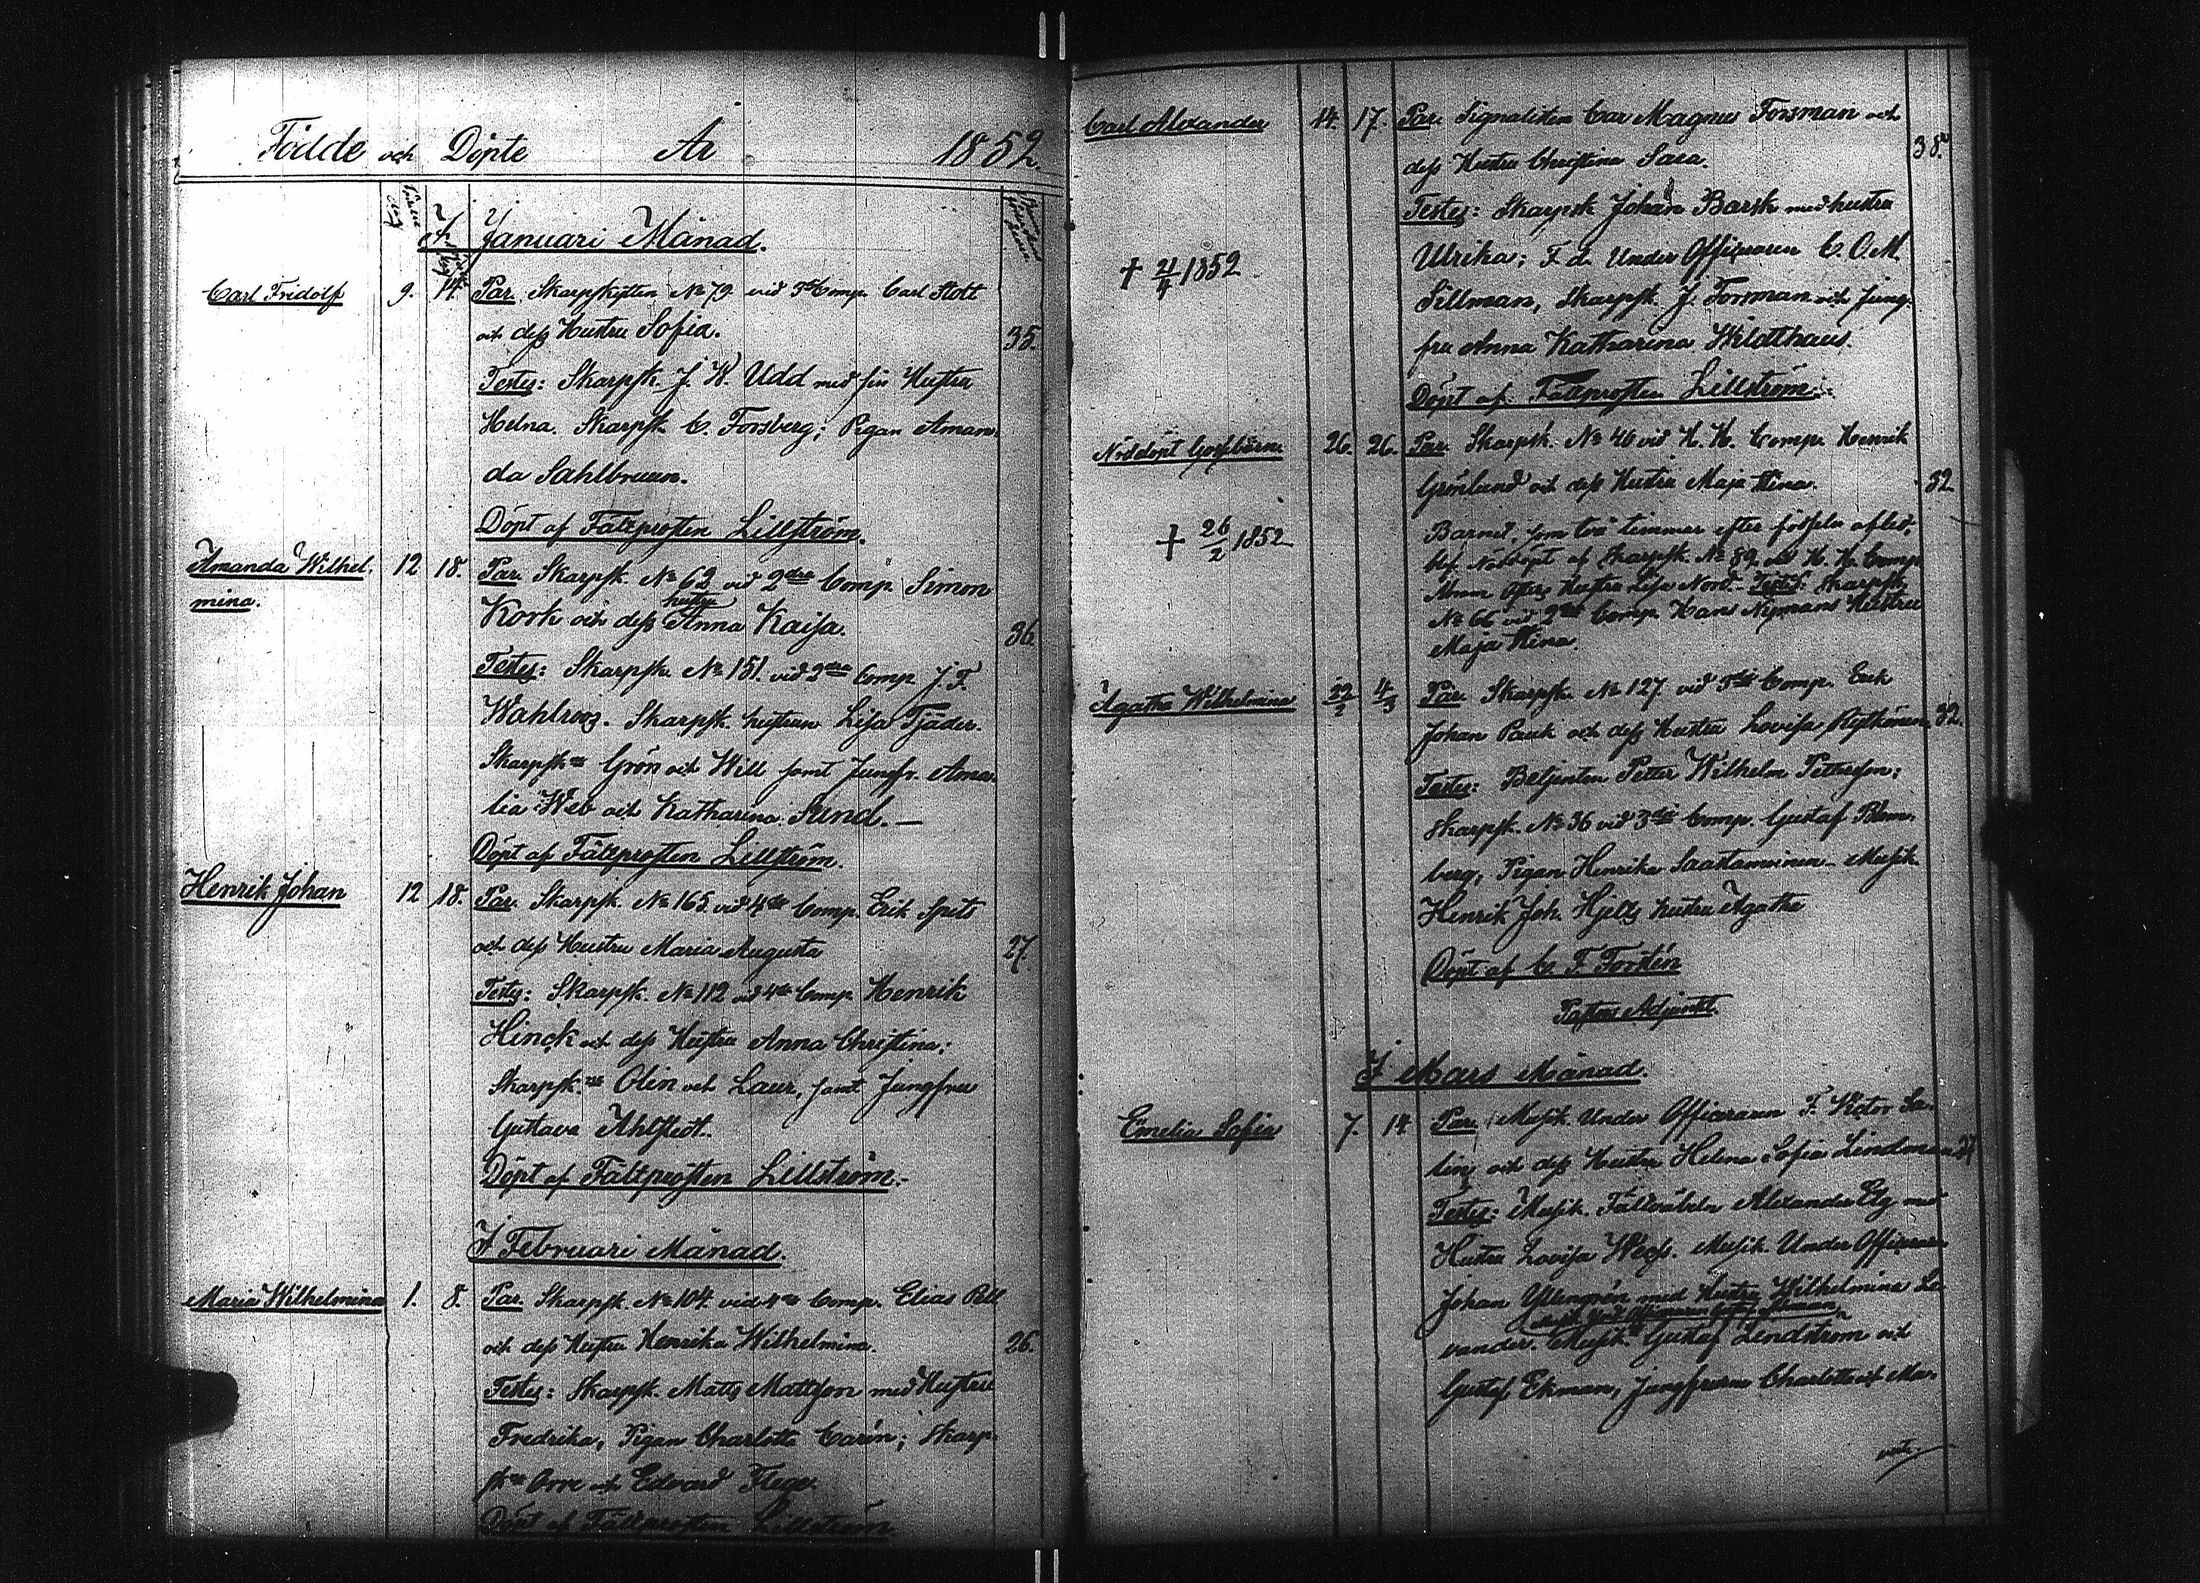 Födde och Döpte År 1852.
I Januari Månad.
Carl Fridolf 9. 14. Par. Skarpskytten No 79 vid 3dje Comp. Carl Stolt
och dess Hustru Sofia. 35.
Testes: Skarpsk. J. W. Udd med sin Hustru
Helena. Skarpsk. C. Forsberg; Pigan Aman-
da Sahlbruun.
Döpt af Fältprosten Lillström.
Amanda Wilhel- 12 18. Par. Skarpsk. No 62 vid 2dra Comp. Simon
mina. Kork och dess hustru Anna Kaisa. 36.
Testes: Skarpsk. No 151. vid 2dra Comp. J. F.
Wahlroos. Skarpsk. hustrun Lisa Tjäder.
Skarpsk:ne Grön och Will samt Jungfr. Ama-
lia Web och Katharina Sund. —
Döpt af Fältprosten Lillström.
Henrik Johan 12 18. Par. Skarpsk. No 165. vid 4de Comp. Erik Spets
och dess Hustru Maria Augusta 27.
Testes: Skarpsk. No 112 vid 4de Comp. Henrik
Hinck och dess Hustru Anna Christina;
Skarpsk:ne Olin och Laur, samt Jungfru
Gustava Ahlstedt.
Döpt af Fältprosten Lillström.
I Februari Månad.
Maria Wilhelmina 1. 8. Par. Skarpsk. No 104. vid Comp. Elias Pell
och dess Hustru Henrika Wilhelmina. 26.
Testes: Skarpsk. Matts Mattsson med Hustru
Fredrika, Pigan Charlotta Carén; Skarp-
sk:ne Orre och Edvard Flege.
Döpt af Fältprosten Lillström
Carl Alexander 14. 17. Par. Signalisten Carl Magnus Forsman och
dess Hustru Christina Sara. 38.
Testes: Skarpsk Johan Barsk med hustru
† 21/4 1852 Ulrika; F. d. Under Officeraren C. O. M.
Sillman, Skarpsk. J. Forsman och Jung-
fru Anna Katharina Wildthaus.
Döpt af Fältprosten Lillström.
Nöddöpt Gossebarn 26. 26. Par. Skarpsk. No 46 vid H. K. Comp. Henrik
Grönlund och dess Hustru Maja Stina. 32
† 26/2 1852 Barnet, som två timmar efter födseln afled,
blef Nöddöpt af Skarpsk. No 89 vid H. K. Comp.
Hustru Lisa Nord. Testes: Skarpsk.
No 66 vid 2dra Comp. Hans Nymans Hustru
Maja Stina.
Agatha Wilhelmina 22/2 4/3 Par. Skarpsk. No 127. vid 3dje Comp. Erik
Johan Pauk och dess Hustru Lovisa 32.
Testes: Betjenten Petter Wilhelm Pettersson;
Skarpsk. No 36 vid 3dje Comp. Gustaf Blom-
berg; Pigan Henrika Saastamoinen - Musik.
Henrik Joh. Hjelts hustru Agatha
Döpt af C. F. Forstén
Pastors Adjunct.
I Mars Månad.
Emelia Sofia 7. 14 Par. Musik. Under Officeraren F. Victor Sa-
lin och dess Hustru Helena Sofia Lindman
Testes: Musik. Fältväbeln Alexander Elg med
Hustru Lovisa Musik. Under Officeraren
Johan med Hustru Wilhelmina Le-
vander. Musik. Gustaf Lindström och
Gustaf Ekman, Jungfrurna Charlotta och Ma-